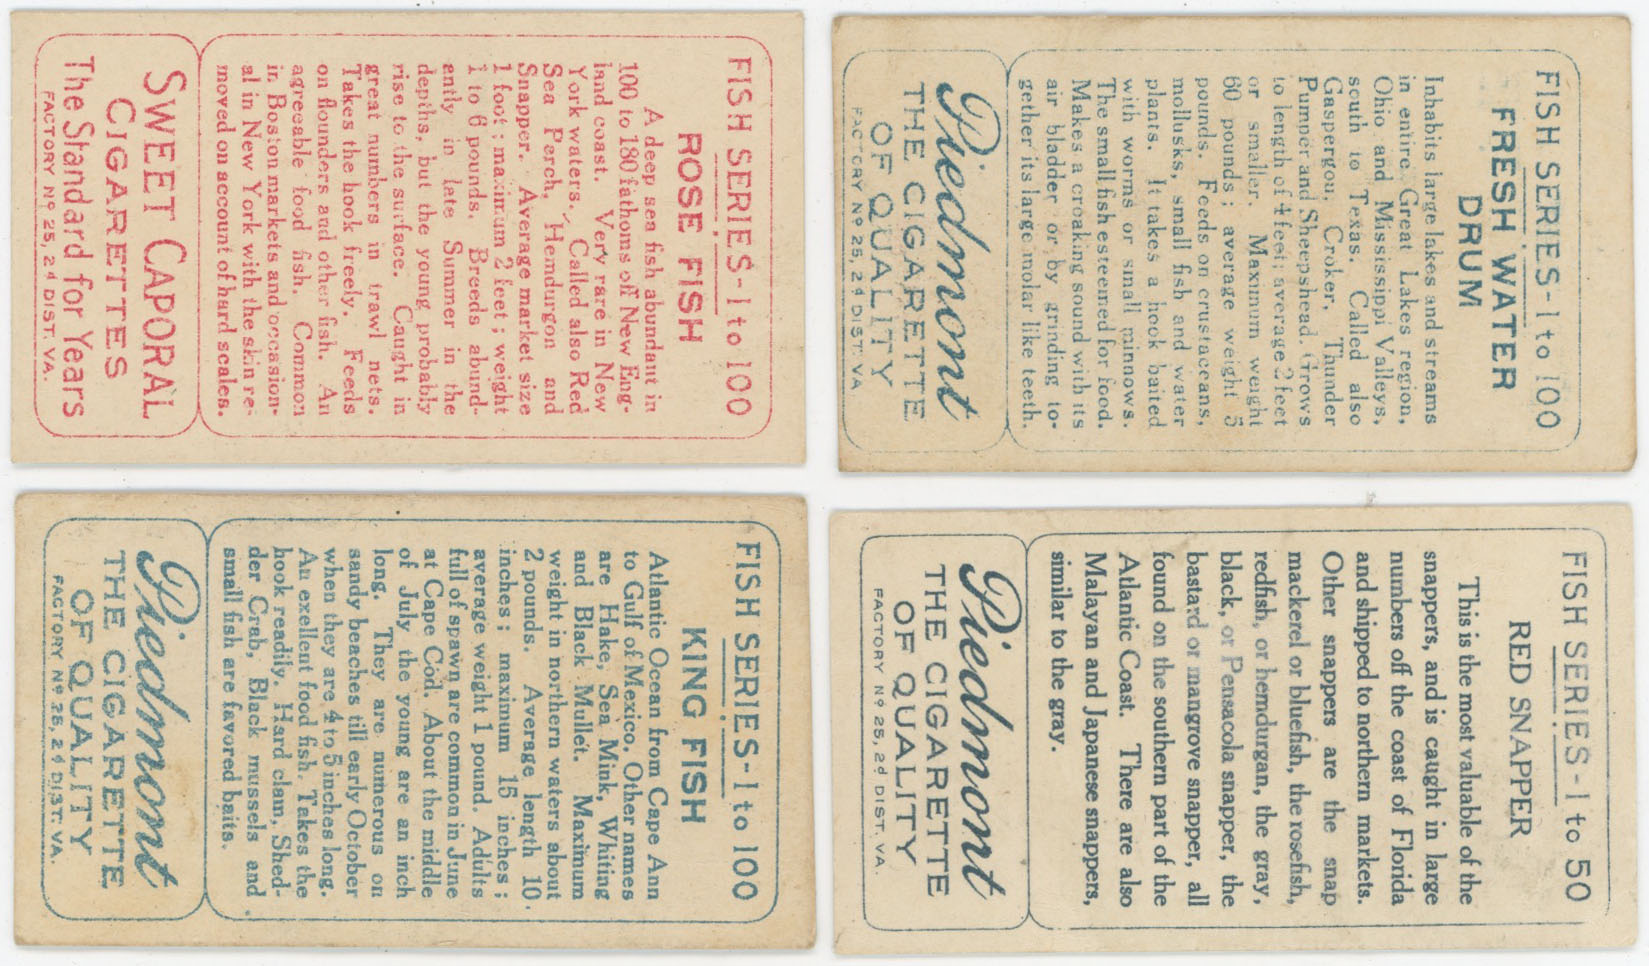 FISH SERIES-1 to 100
ROSE FISH
A deep sea fish abundant in
100 to 180 fathoms off New Eng-
land coast. Very rare in New
York waters. Called also Red
Sea Perch, Hemdurgon and
Snapper. Average market size
1 foot; maximum 2 feet; weight
1 to 6 pounds. Breeds abund-
antly in late Summer in the
depths, but the young probably
rise to the surface. Caught in
great numbers in trawl nets.
Takes the hook freely. Feeds
on flounders and other fish. An
agreeable food fish. Common
in Boston markets and occasion-
al in New York with the skin re-
moved on account of hard scales.
SWEET CAPORAL
CIGARETTES
The Standard for Years
FACTORY Nº 25, 2d DIST. VA.
FISH SERIES-1 to 100
FRESH WATER
DRUM
Inhabits large lakes and streams
in entire Great Lakes region,
Ohio and Mississippi Valleys,
south to Texas. Called also
Gaspergou, Croker, Thunder
Pumper and Sheepshead. Grows
to length of 4 feet; average 2 feet
or smaller. Maximum weight
60 pounds; average weight 5
pounds. Feeds on crustaceans,
mollusks, small fish and water
plants. It takes a hook baited
with worms or small minnows.
The small fish esteemed for food.
Makes a croaking sound with its
air bladder or by grinding to-
gether its large molar like teeth.
Piedmont
THE CIGARETTE
OF QUALITY
FACTORY Nº 25, 2d DIST. VA
FISH SERIES-1 to 100
KING FISH
Atlantic Ocean from Cape Ann
to Gulf of Mexico. Other names
are Hake, Sea Mink, Whiting
and Black Mullet. Maximum
weight in northern waters about
2 pounds. Average length 10
inches; maximum 15 inches;
average weight 1 pound. Adults
full of spawn are common in June
at Cape Cod. About the middle
of July the young are an inch
long. They are numerous on
sandy beaches till early October
when they are 4 to 5 inches long.
An exellent food fish. Takes the
hook readily. Hard clam, Shed-
der Crab, Black mussels and
small fish are favored baits.
Piedmont
THE CIGARETTE
OF QUALITY
FACTORY Nº 25, 2d DIST. VA.
FISH SERIES-1 to 50
RED SNAPPER
This is the most valuable of the
snappers, and is caught in large
numbers off the coast of Florida
and shipped to northern markets.
Other snappers are the snap
mackerel or bluefish, the rosefish,
redfish, or hemdurgan, the gray,
black, or Pensacola snapper, the
bastard or mangrove snapper, all
found on the southern part of the
Atlantic Coast. There are also
Malayan and Japanese snappers,
similar to the gray.
Piedmont
THE CIGARETTE
OF QUALITY
FACTORY Nº 25, 2d DIST. VA.